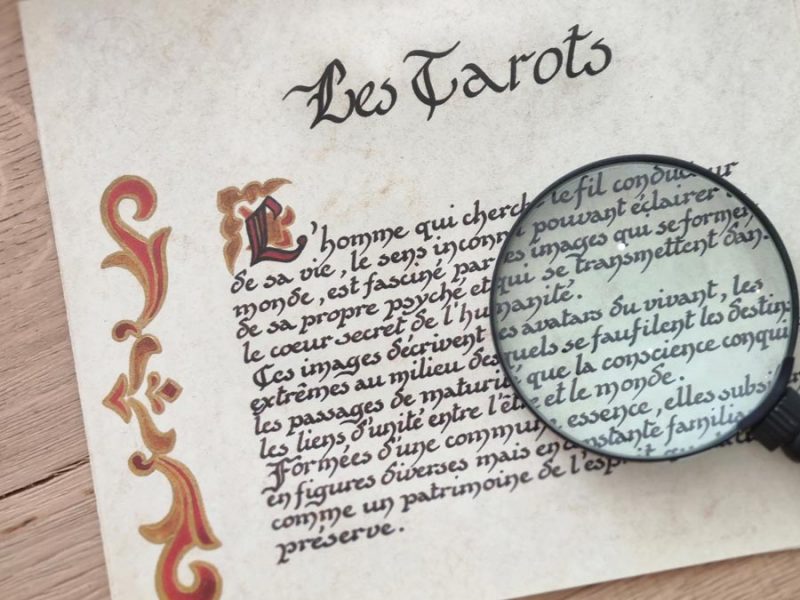 Les Tarots
L'homme qui cherche le fil conducteur
de sa vie, le sens inconnu pouvant éclairer
monde, est fasciné par les images qui se forment
de sa propre psyché et qui se transmettent dans
le coeur secret de l'humanité.
Ces images décrivent les avatars du vivant, les
extrêmes au milieu desquels se faufilent les destins
les passages de maturité que la conscience conquiert
les liens d'unité entre l'être et le monde.
Formées d'une commune essence, elles subsistent
en figures diverses mais en constante familia
comme un patrimoine de l'esprit
préserve.